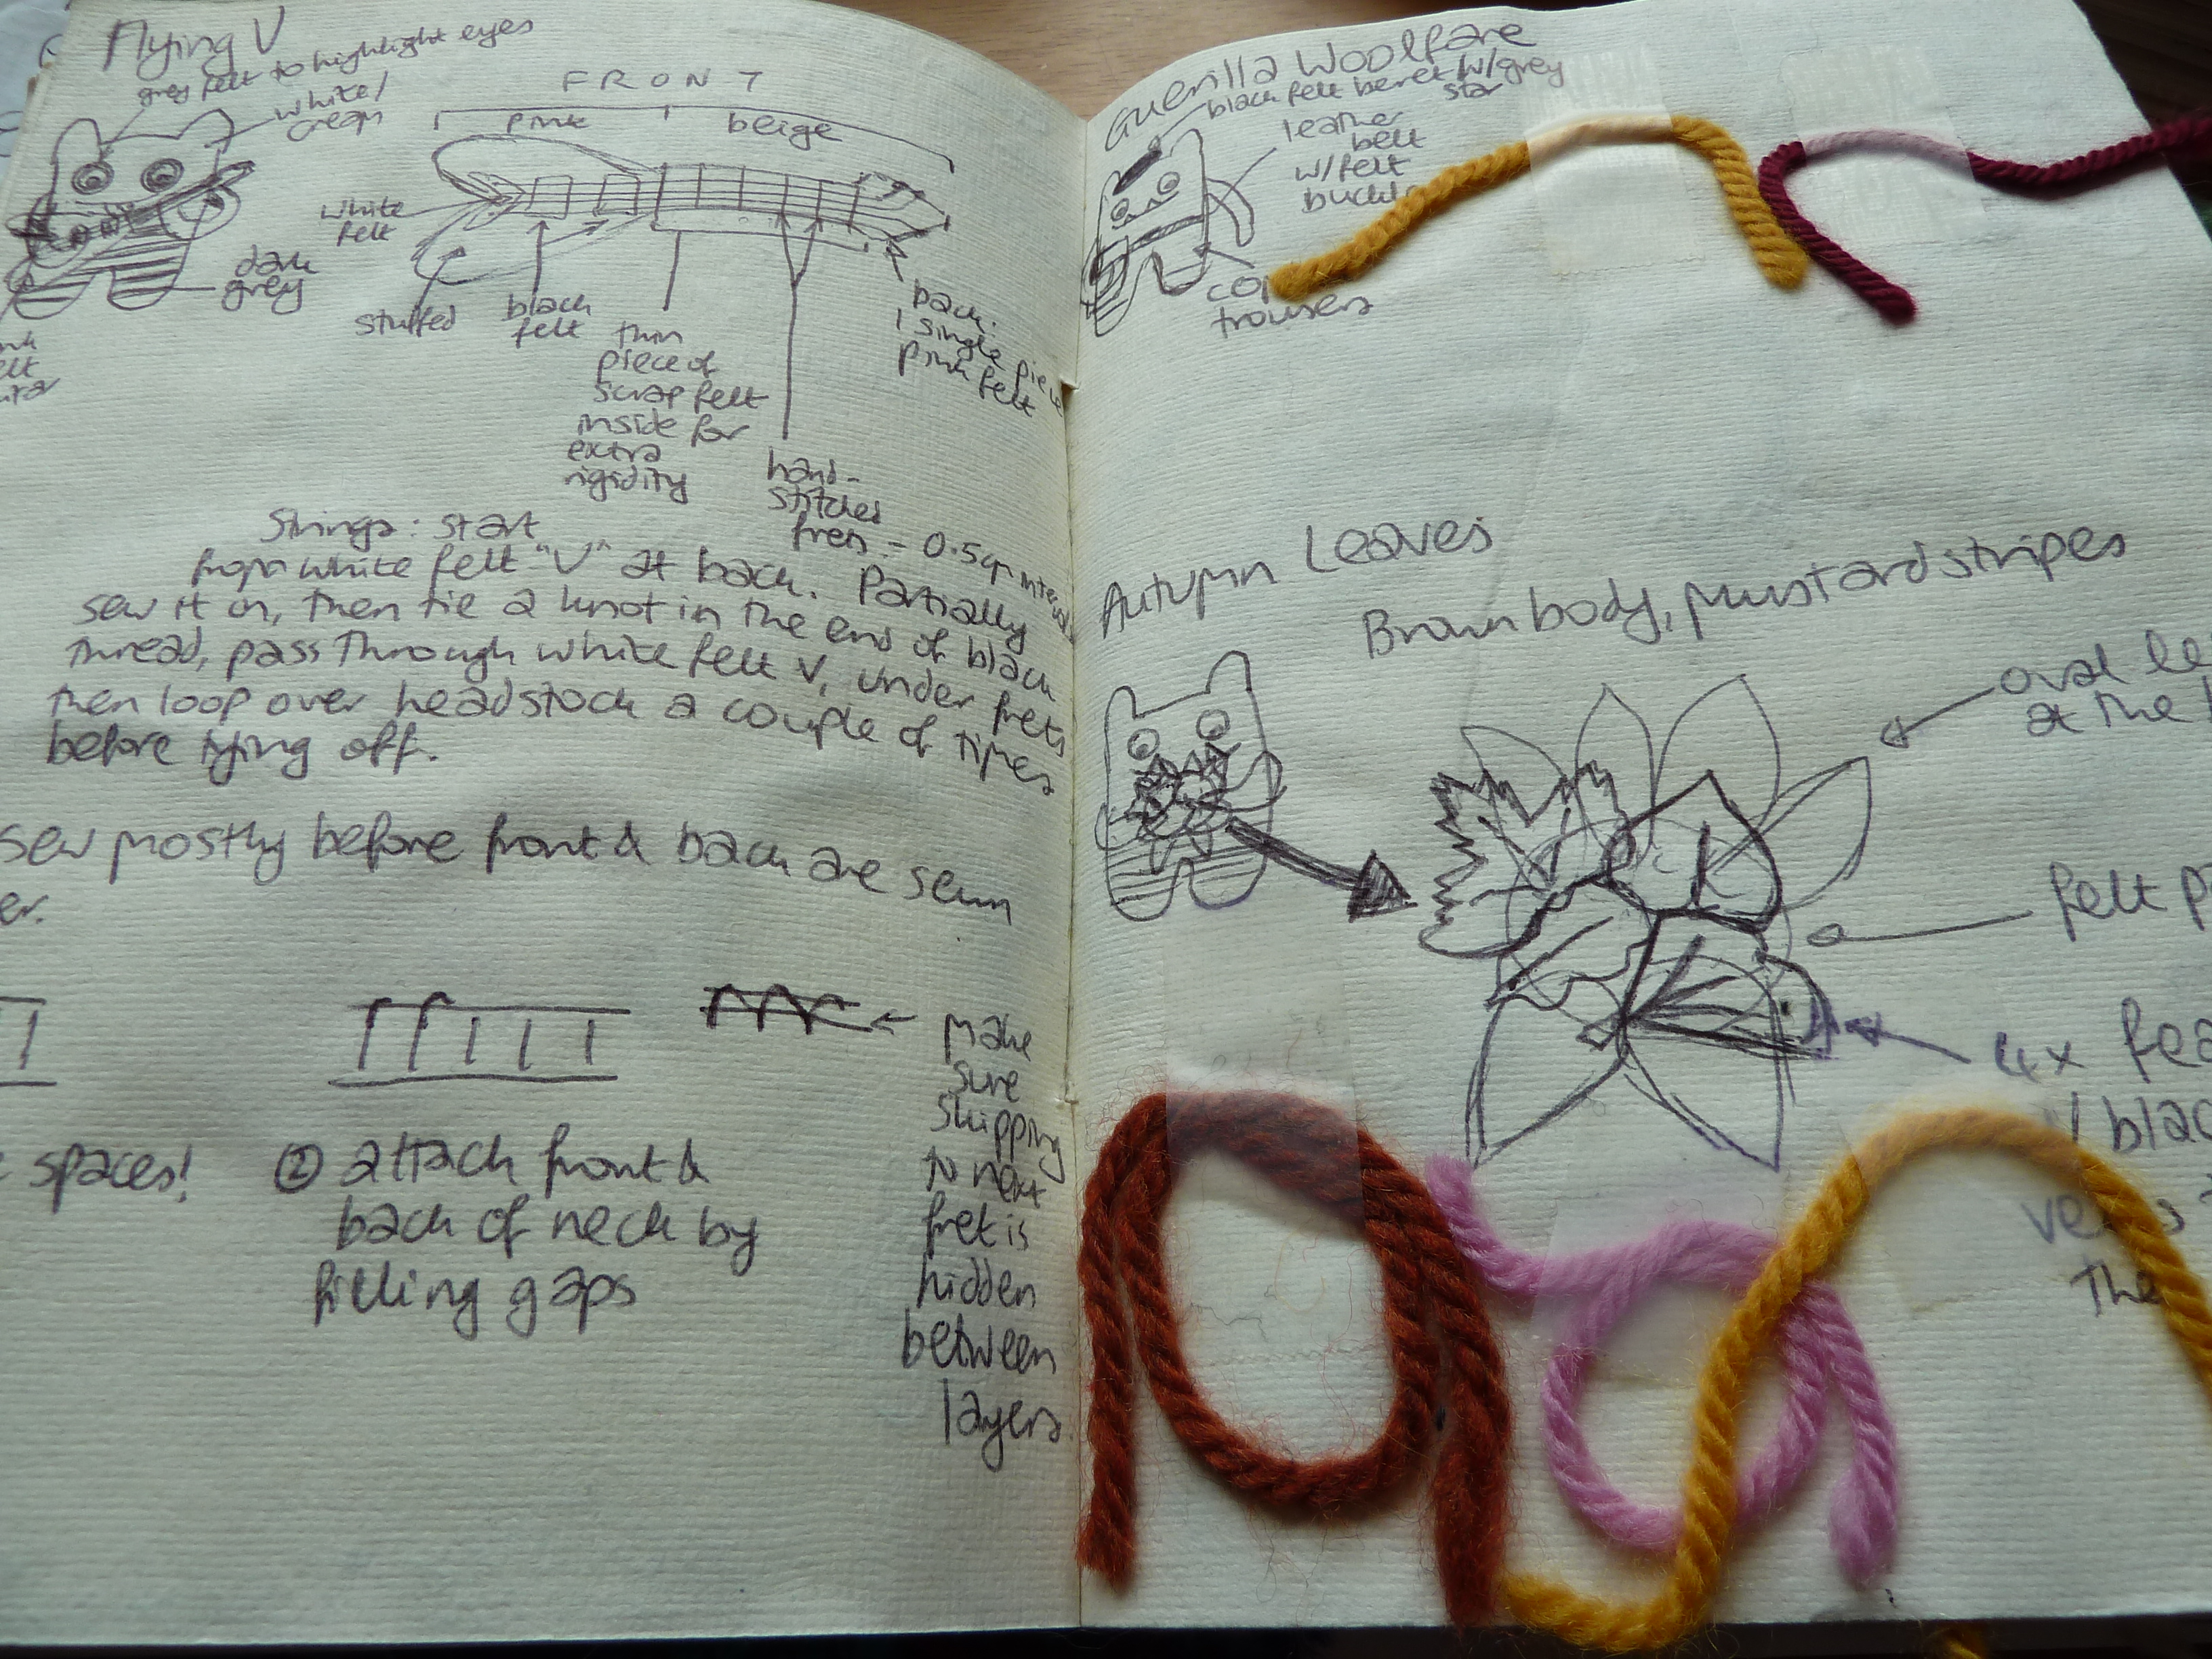 Flying V
grey felt to highlight eyes
white/
cream
dark
grey
FRONT
pink
beige
white
felt
stuffed
black
felt
thin
piece of
scrap felt
inside for
extra
rigidity
hand-
stitched
frets - 0.5cm
back:
1 single piece
pink felt
Strings: start
from white felt "V" at back. Partially
sew it on, then tie a knot in the end of black
thread, pass through white felt V, under frets
then loop over headstock a couple of times
before tying off.
sew mostly before front & back are sewn
spaces!
② attach front &
back of neck by
filling gaps
make
sure
skipping
to next
fret is
hidden
between
layers
Guerilla Woolfare
black felt beret w/grey
star
leather
belt
w/felt
buckle
trousers
Autumn Leaves
Brown body, mustard stripes
oval
at the
felt
4x
the